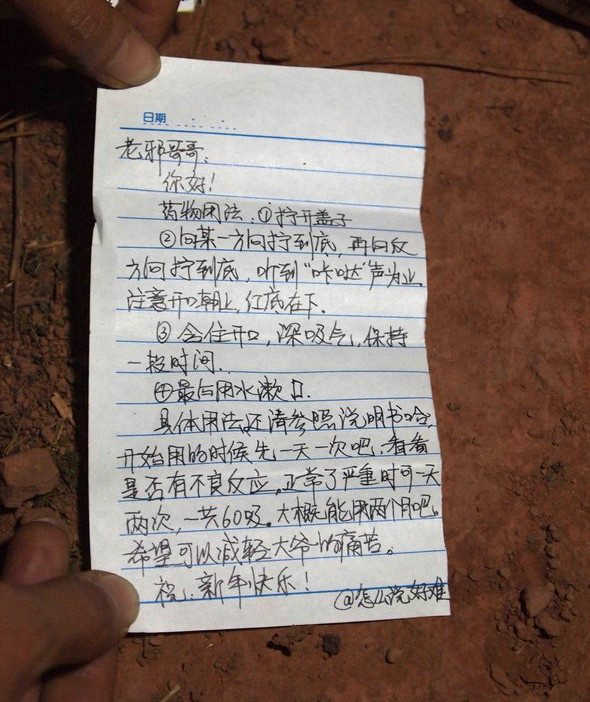 日期
老邪哥哥:
你好!
药物用法:①拧开盖子
②向某一方向拧到底,再向反
方向拧到底,听到“咔哒”声为止。
注意开口朝上,红底在下。
③含住开口,深吸气,保持
一段时间。
④最后用水漱口。
具体用法还请参照说明书哈,
开始用的时候先一天一次吧,看看
是否有不良反应。正常了严重时可一天
两次,一共60吸。大概能用两个月吧。
希望可以减轻大爷的痛苦。
祝:新年快乐!
@怎么说好难